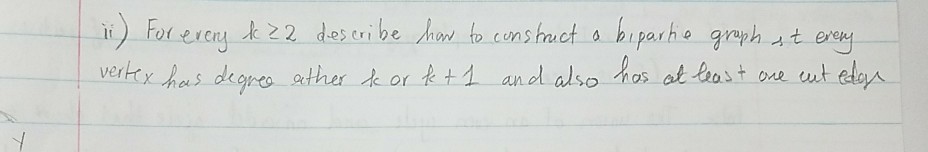 ii) For every k ≥ 2 describe how to construct a biparhe graph s.t every
vertex has degree ather k or k + 1 and also has at least one cut edge
y